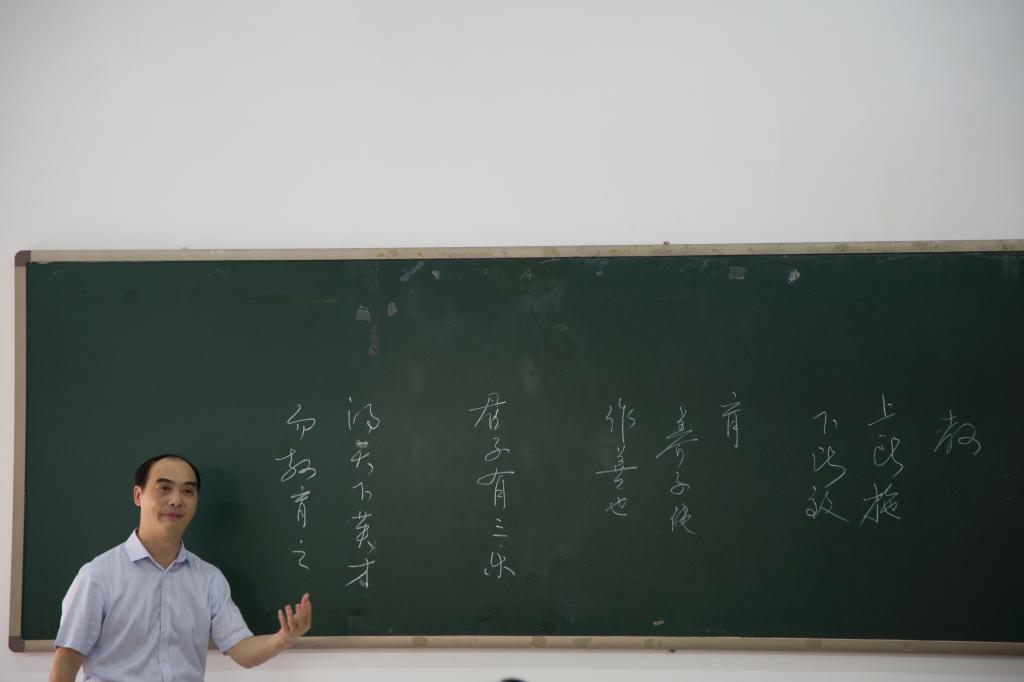 教
上所施
下所效
育
养子使
作善也
君子有三乐
得天下英才
而教育之